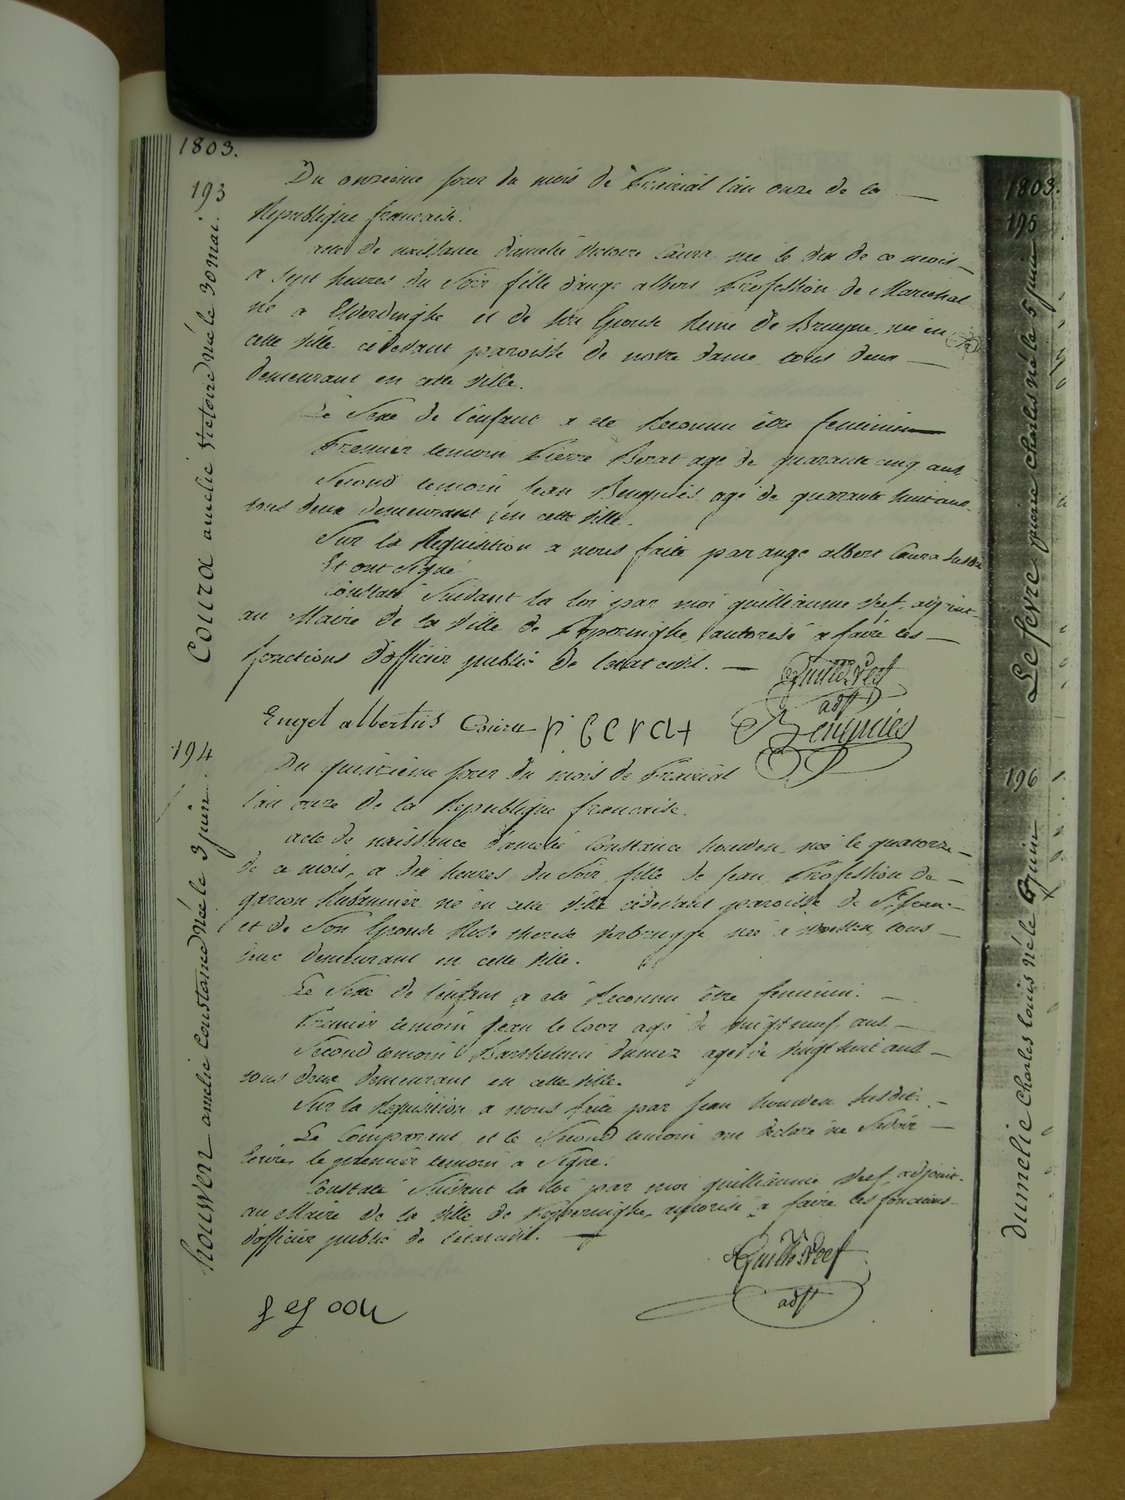 1803.
193
Coura amelie Victoire Née le 30 mai.
Du onzieme jour du mois de Prairial l'an onze de la
Republique francaise.
acte de naissance d'amelie Victoire Coura née le dix de ce mois
a sept heures du Soir fille d'ange albert Profession de Marechal
né a Elverdinghe et de Son Epouse Reine de Bruyne, née en
cette Ville cidevant paroisse de notre dame tous deux
demeurant en cette Ville.
Le Sexe de l'enfant a été Reconnu être feminin
Premier temoin Pierre Berat agé de quarante cinq ans
Second temoin Jean Benguiés agé de quarante huit ans
tous deux demeurant en cette Ville.
Sur la Requisition a nous faite par ange albert Coura Susdit
Et ont Signé
Constaté Suivant la loi par moi guilliaume Reef adjoint
au Maire de la Ville de Poperinghe autorisé a faire les
fonctions d'officier public de l'etat civil.
Guill. Reef
adjt
Engel albertus Coura P. Berat Benguiés
194
houwen amelie Constance Née le 3 juin
Du quinzieme jour du mois de Prairial
l'an onze de la Republique francaise.
acte de naissance d'amelie Constance houwen, née le quatorze
de ce mois, a dix heures du Soir fille de Jean, Profession de
garcon né en cette Ville cidevant paroisse de St. Jean
et de Son Epouse Rose therese Verbrugge née a tous
deux demeurant en cette Ville.
Le Sexe de l'enfant a été Reconnu être feminin.
Premier temoin Jean le loor agé de Vingt neuf ans
Second temoin Barthelemi dumez agé de Vingt huit ans
tous deux demeurant en cette Ville.
Sur la Requisition a nous faite par Jean houwen Susdit.
Le Comparant et le Second temoin ont declaré ne Savoir
Ecrire, le premier temoin a Signé.
Constaté Suivant la loi par moi guilliaume Reef, adjoint
au Maire de la Ville de Poperinghe, autorisé a faire les fonctions
d'officier public de l'etat civil.
Guill. Reef
adjt
1803.
195
Le fevre pierre charles né le 5 juin
196
dumelie Charles louis né le 6 juin